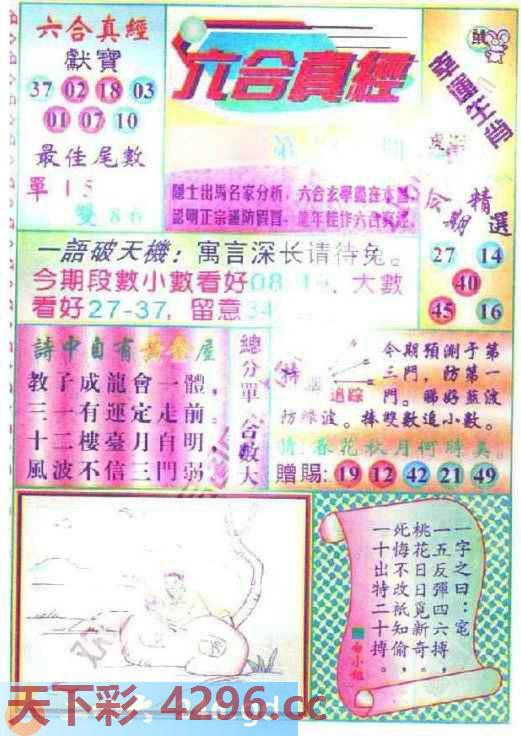 六合真經
獻寶
37 02 18 03
01 07 10
最佳尾數
單 1 5
雙 8 6
六合真經
隱士出馬名家分析，六合玄學盡在本
認明正宗謹防假冒，
鼠
幸運生肖
期精選
27 14
40
45 16
一語破天機：寓言深长请待兔。
今期段數小數看好08-1 、大數
看好27-37，留意34
詩中自有黃金屋
教子成龍會一體，
三一有運定走前。
十二樓臺月自明
風波不信三門弱
總分單、合數大
特
追踪
今期預測于第
三門，防第一
門。睇好藍波
防綠波。捧雙數追小數。
猜：春花秋月何時美。
贈賜：19 12 42 21 49
一字之曰：
一五反彈四六搏，
桃花日日覓新奇，
死悔不改祇知偷，
一十出特二十搏。
白小姐
天下彩 4296.cc